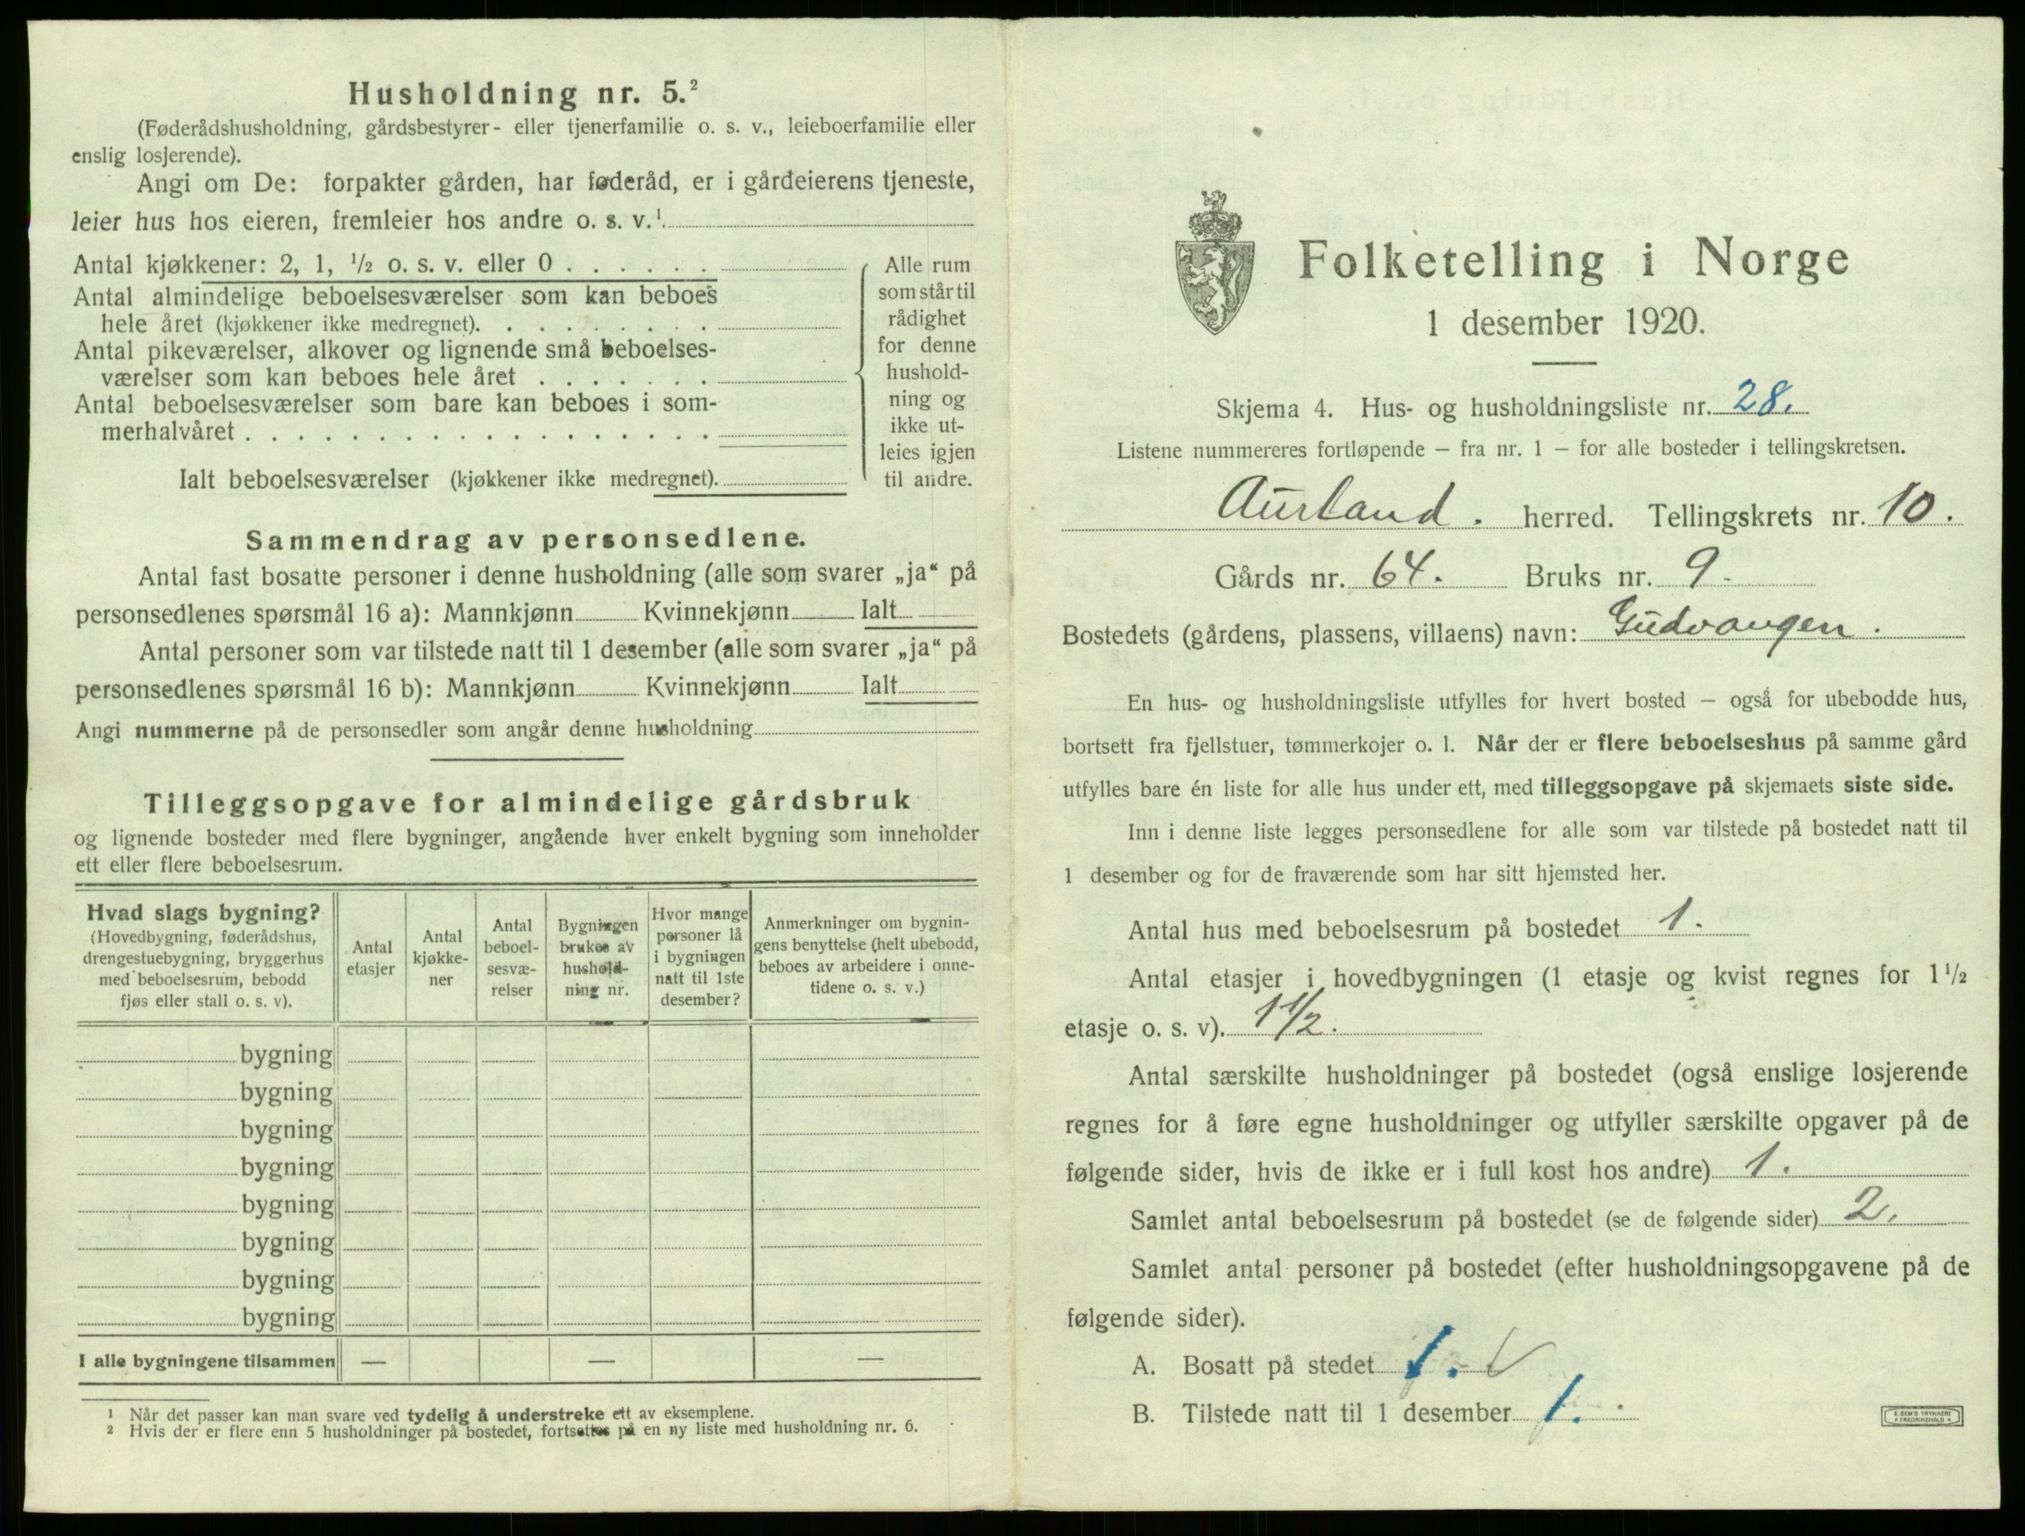 Husholdning nr. 5.²
(Føderådshusholdning, gårdsbestyrer- eller tjenerfamilie o. s. v., leieboerfamilie eller
enslig losjerende).
Angi om De: forpakter gården, har føderåd, er i gårdeierens tjeneste,
leier hus hos eieren, fremleier hos andre o. s. v.¹
Antal kjøkkener: 2, 1, ½ o. s. v. eller 0 . . . . . .
Antal almindelige beboelsesværelser som kan beboes
hele året (kjøkkener ikke medregnet). . . . . . . . .
Antal pikeværelser, alkover og lignende små beboelses-
værelser som kan beboes hele året . . . . . . .
Antal beboelsesværelser som bare kan beboes i som-
merhalvåret . . . . . . . . . . . . . . . . . .
Ialt beboelsesværelser (kjøkkener ikke medregnet).
Alle rum
som står til
rådighet
for denne
hushold-
ning og
ikke ut-
leies igjen
til andre.
Sammendrag av personsedlene.
Antal fast bosatte personer i denne husholdning (alle som svarer „ja“ på
personsedlenes spørsmål 16 a): Mannkjønn Kvinnekjønn Ialt
Antal personer som var tilstede natt til 1 desember (alle som svarer „ja“ på
personsedlenes spørsmål 16 b): Mannkjønn Kvinnekjønn Ialt
Angi nummerne på de personsedler som angår denne husholdning
Tilleggsopgave for almindelige gårdsbruk
og lignende bosteder med flere bygninger, angående hver enkelt bygning som inneholder
ett eller flere beboelsesrum.
Hvad slags bygning?
(Hovedbygning, føderådshus,
drengestuebygning, bryggerhus
med beboelsesrum, bebodd
fjøs eller stall o. s. v).
Antal
etasjer
Antal
kjøkke-
ner
Antal
beboel-
sesvæ-
relser
Bygningen
brukes av
hushold-
ning nr.
Hvor mange
personer lå
i bygningen
natt til 1ste
desember?
Anmerkninger om bygnin-
gens benyttelse (helt ubebodd,
beboes av arbeidere i onne-
tidene o. s. v.)
bygning
bygning
bygning
bygning
bygning
bygning
bygning
bygning
I alle bygningene tilsammen — — —
¹ Når det passer kan man svare ved tydelig å understreke ett av eksemplene.
² Hvis der er flere enn 5 husholdninger på bostedet, fortsettes på en ny liste med husholdning nr. 6.
Folketelling i Norge
1 desember 1920.
Skjema 4. Hus- og husholdningsliste nr. 28.
Listene nummereres fortløpende – fra nr. 1 – for alle bosteder i tellingskretsen.
Aurland. herred. Tellingskrets nr. 10.
Gårds nr. 64. Bruks nr. 9.
Bostedets (gårdens, plassens, villaens) navn: Gudvangen.
En hus- og husholdningsliste utfylles for hvert bosted – også for ubebodde hus,
bortsett fra fjellstuer, tømmerkojer o. l. Når der er flere beboelseshus på samme gård
utfylles bare én liste for alle hus under ett, med tilleggsopgave på skjemaets siste side.
Inn i denne liste legges personsedlene for alle som var tilstede på bostedet natt til
1 desember og for de fraværende som har sitt hjemsted her.
Antal hus med beboelsesrum på bostedet 1.
Antal etasjer i hovedbygningen (1 etasje og kvist regnes for 1 ½
etasje o. s. v). 1 ½.
Antal særskilte husholdninger på bostedet (også enslige losjerende
regnes for å føre egne husholdninger og utfyller særskilte opgaver på de
følgende sider, hvis de ikke er i full kost hos andre) 1.
Samlet antal beboelsesrum på bostedet (se de følgende sider) 2.
Samlet antal personer på bostedet (efter husholdningsopgavene på de
følgende sider).
A. Bosatt på stedet 1.
B. Tilstede natt til 1 desember 1.
E. SEM'S TRYKKERI
FREDRIKSHALD